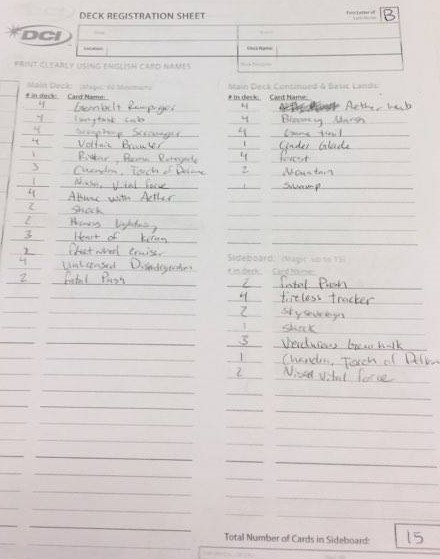 DECK REGISTRATION SHEET
B
DCI
PRINT CLEARLY USING ENGLISH CARD NAMES
Main Deck:
# in deck: Card Name:
4 Longtusk Cub
4 Scrapheap Scrounger
4 Voltaic Brawler
1 Rishkar, Peema Renegade
3 Chandra, Torch of Defiance
1 Nissa, Vital Force
4 Attune with Aether
2 Shock
2 Harness Lightning
3 Heart of Kiran
2 Fleetwheel Cruiser
4 Unlicensed Disintegration
2 Fatal Push
Main Deck Continued & Basic Lands:
# in deck: Card Name:
4 Aether hub
4 Blooming Marsh
4 Game trail
1 Cinder Glade
4 Forest
2 Mountain
1 Swamp
Sideboard:
# in deck: Card Name:
2 Fatal Push
4 tireless tracker
2 Skysovereign
1 Shock
3 Verdurous Gearhulk
1 Chandra, Torch of Defian
2 Nissa Vital force
Total Number of Cards in Sideboard: 15